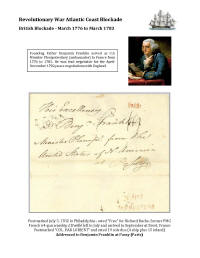 Revolutionary War Atlantic Coast Blockade
British Blockade - March 1776 to March 1783
Founding Father Benjamin Franklin served as U.S.
Minister Plenipotentiary (ambassador) to France from
1776 to 1785. He was lead negotiator for the April-
November 1782 peace negotiations with England.
His Excellency
Benj Franklin
Minister Plenip from the
United States of N. America
Paris
Postmarked July 5, 1782 in Philadelphia - rated "Free" for Richard Bache, former PMG
French
in July and arrived in September at Brest, France
Postmarked "COL. PAR LORIENT" and rated
Addressed to Benjamin Franklin at Passy (Paris)